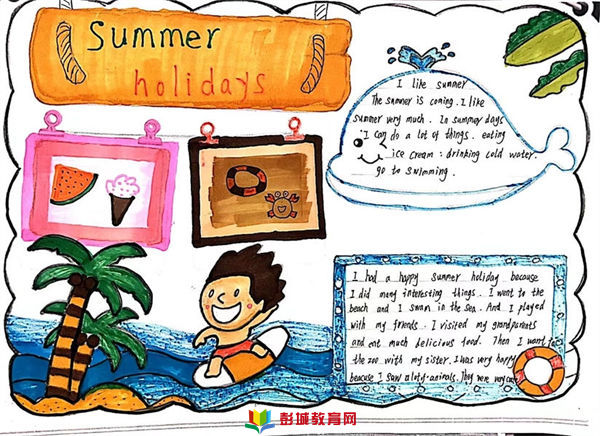 Summer
holidays
I like summer
The summer is coming. I like
summer very much. In summar days
I can do a lot of things. eating
ice cream : drinking cold water.
go to swimming.
I had a happy summer holiday because
I did many interesting things. I went to the
beach and I swam in the sea. And I played
with my friends. I visited my grandparents
and eat much delicious food. Then I went to
the zoo with my sister. I was very happy
because I saw a lot of animals. They were very
彭城教育网